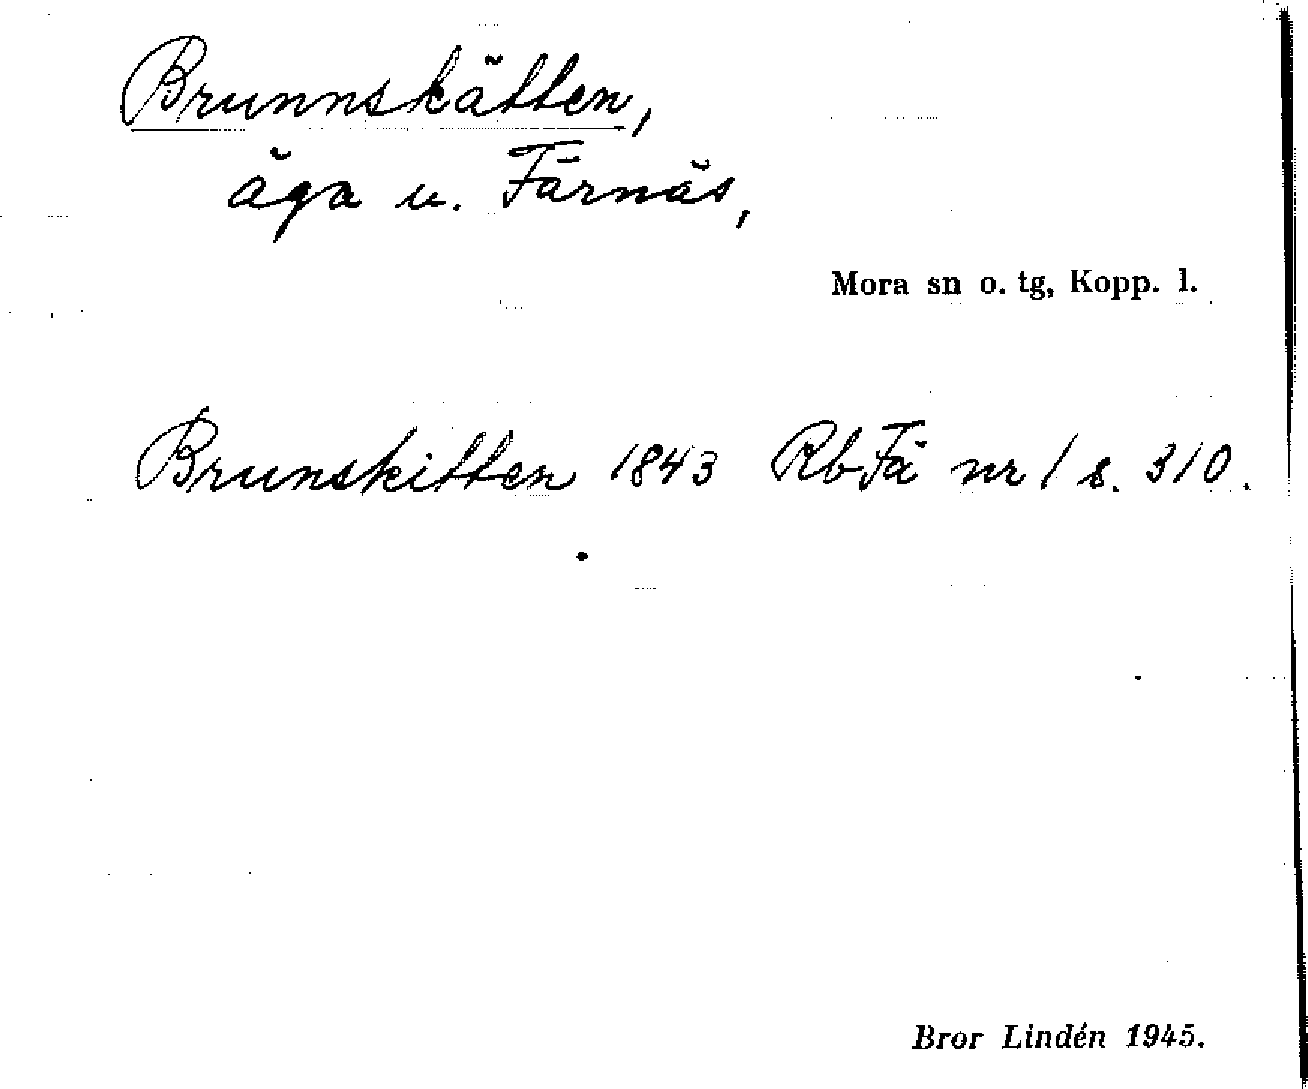 Brunnskätten,
äga u. Färnäs,
Mora sn o. tg, Kopp. l.
Brunskitten 1843 Rb Fä nr 1 s. 310.
Bror Lindén 1945.